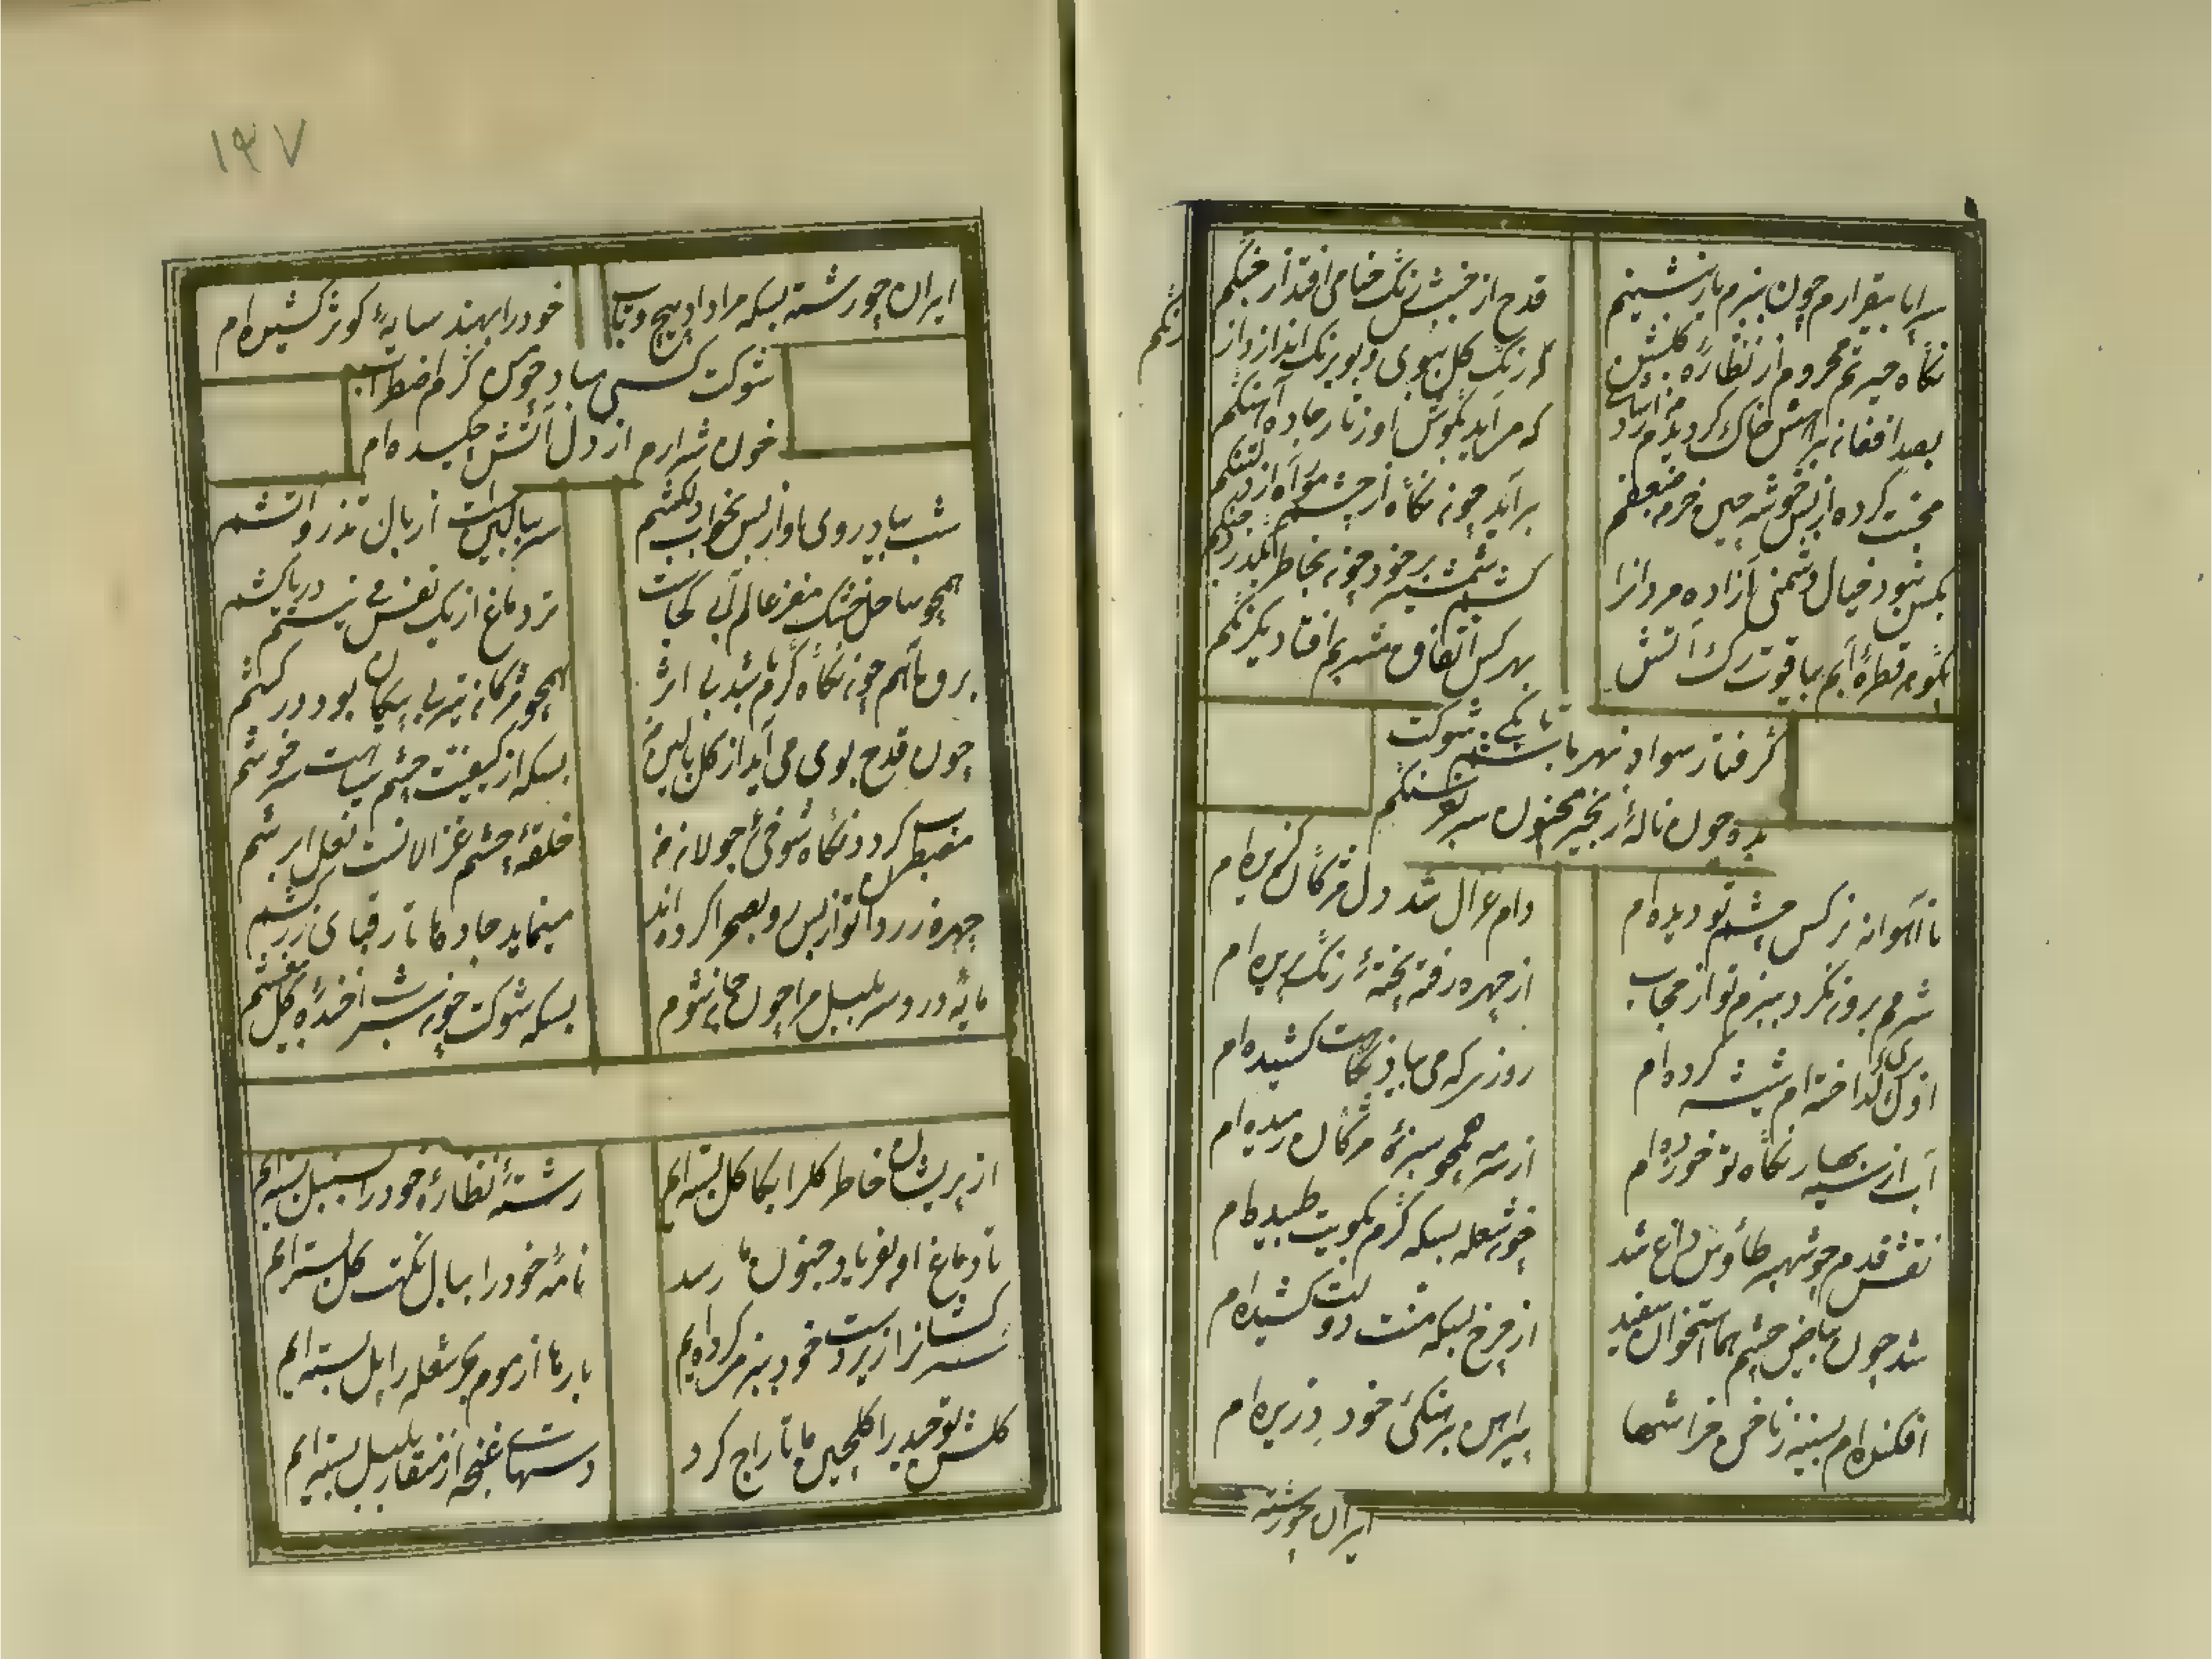 سراپا بیقرارم چون ببزم یار بنشینم
قدح از جنبش رنگ حنا می افتد از چنگم
نگاه حیرتم محرومم از نظاره گلشن
که رنگ گل ببوی و بو برنگ انداز
رنگم
بصد افغان براهش خاک گردیدم
که می آید بگوش آواز تار جاده آهنگم
محبت کرده از بس خوشه چین خرمن ضعفم
برآید چون نگاه از چشم مور آواز
بکس نبود خیال دشمنی آزاده مردانرا
کشم شمشیر بر خود چون بخاطر بگذرد جنگم
بگوهر قطره آبم بیاقوت رگ آتش
بهر کس اتفاق مشربم افتاد یکرنگم
گرفتار سواد شهر تا کی باشم شوکت
بده چون ناله زنجیر مجنون سر
تا آهوانه نرگس چشم تو دیده ام
دام غزال شد دل مژگان گزیده ام
شرمم برون نکرد ببزم تو از حجاب
از چهره رفته رفته رنگ پریده ام
اول گداخته ام شیشه کرده ام
روزی که می بیاد نگاهت کشیده ام
آب از سیه بهار نگاه تو خورده ام
از سرمه همچو سبزه مژگان دمیده ام
نقش قدم چو شهپر طاؤس داغ شد
چون شعله بسکه گرم بکویت طپیده ام
شد چون بیاض چشم هما استخوان سفید
از چرخ بسکه منت دولت کشیده ام
افکنده ام بسینه ز ناخن خراشها
پیراهن برهنگی خود دریده ام
ایران چو رشته
۱۳۷
ایران چو رشته بسکه مرا داد پیچ و تاب
خود را بهند سایه کوثر کشیده ام
شوکت کسی مباد چو من گرم اضطراب
خون شرارم از دل آتش چکیده ام
شب بیاد روی او از بس بخواب دلکشم
سر ببالین است از بال تذرو آتشم
همچو ساحل خشک مغز عالم آبی کجاست
تر دماغ از یک نفس می نیستم دریا کشم
برق آهم چون نگاه گرم شد بی اثر
همچو مژگان تیر بی پیکان بود در ترکشم
چون قدح بوی می آید از گل بالین من
بسکه از کیفیت چشم سیاهت سرخوشم
مضطرب گردد نگاه شوخی جولان من
حلقه چشم غزالانست نعل ابرشم
چهره زرد تو از بس رو بصحرا کرده اند
مینماید جاده ها تار قبای زرکشم
مایه درد سر بلبل مرا چون جان شوم
بسکه شوکت چون شرر از خنده گل
از پریشان خاطر گلرا بکاکل بسته ایم
رشته نظاره خود را بسنبل بسته ایم
تا دماغ او بفریاد جنون ما رسد
نامه خود را ببال نکهت گل بسته ایم
سرکشانرا زیردست خود بنرمی کرده ایم
بارها از موم بحر شعله را پل بسته ایم
گلشن توحید را گلچین ما تاراج کرد
دستهای غنچه از منقار بلبل بسته ایم